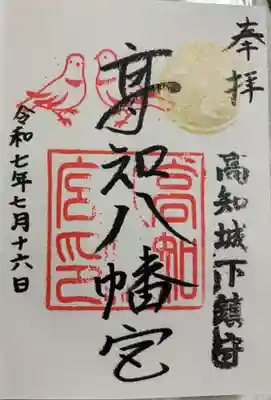 奉拝
高知城下鎮守
高知八幡宮
令和七年七月十六日
高知
宮印